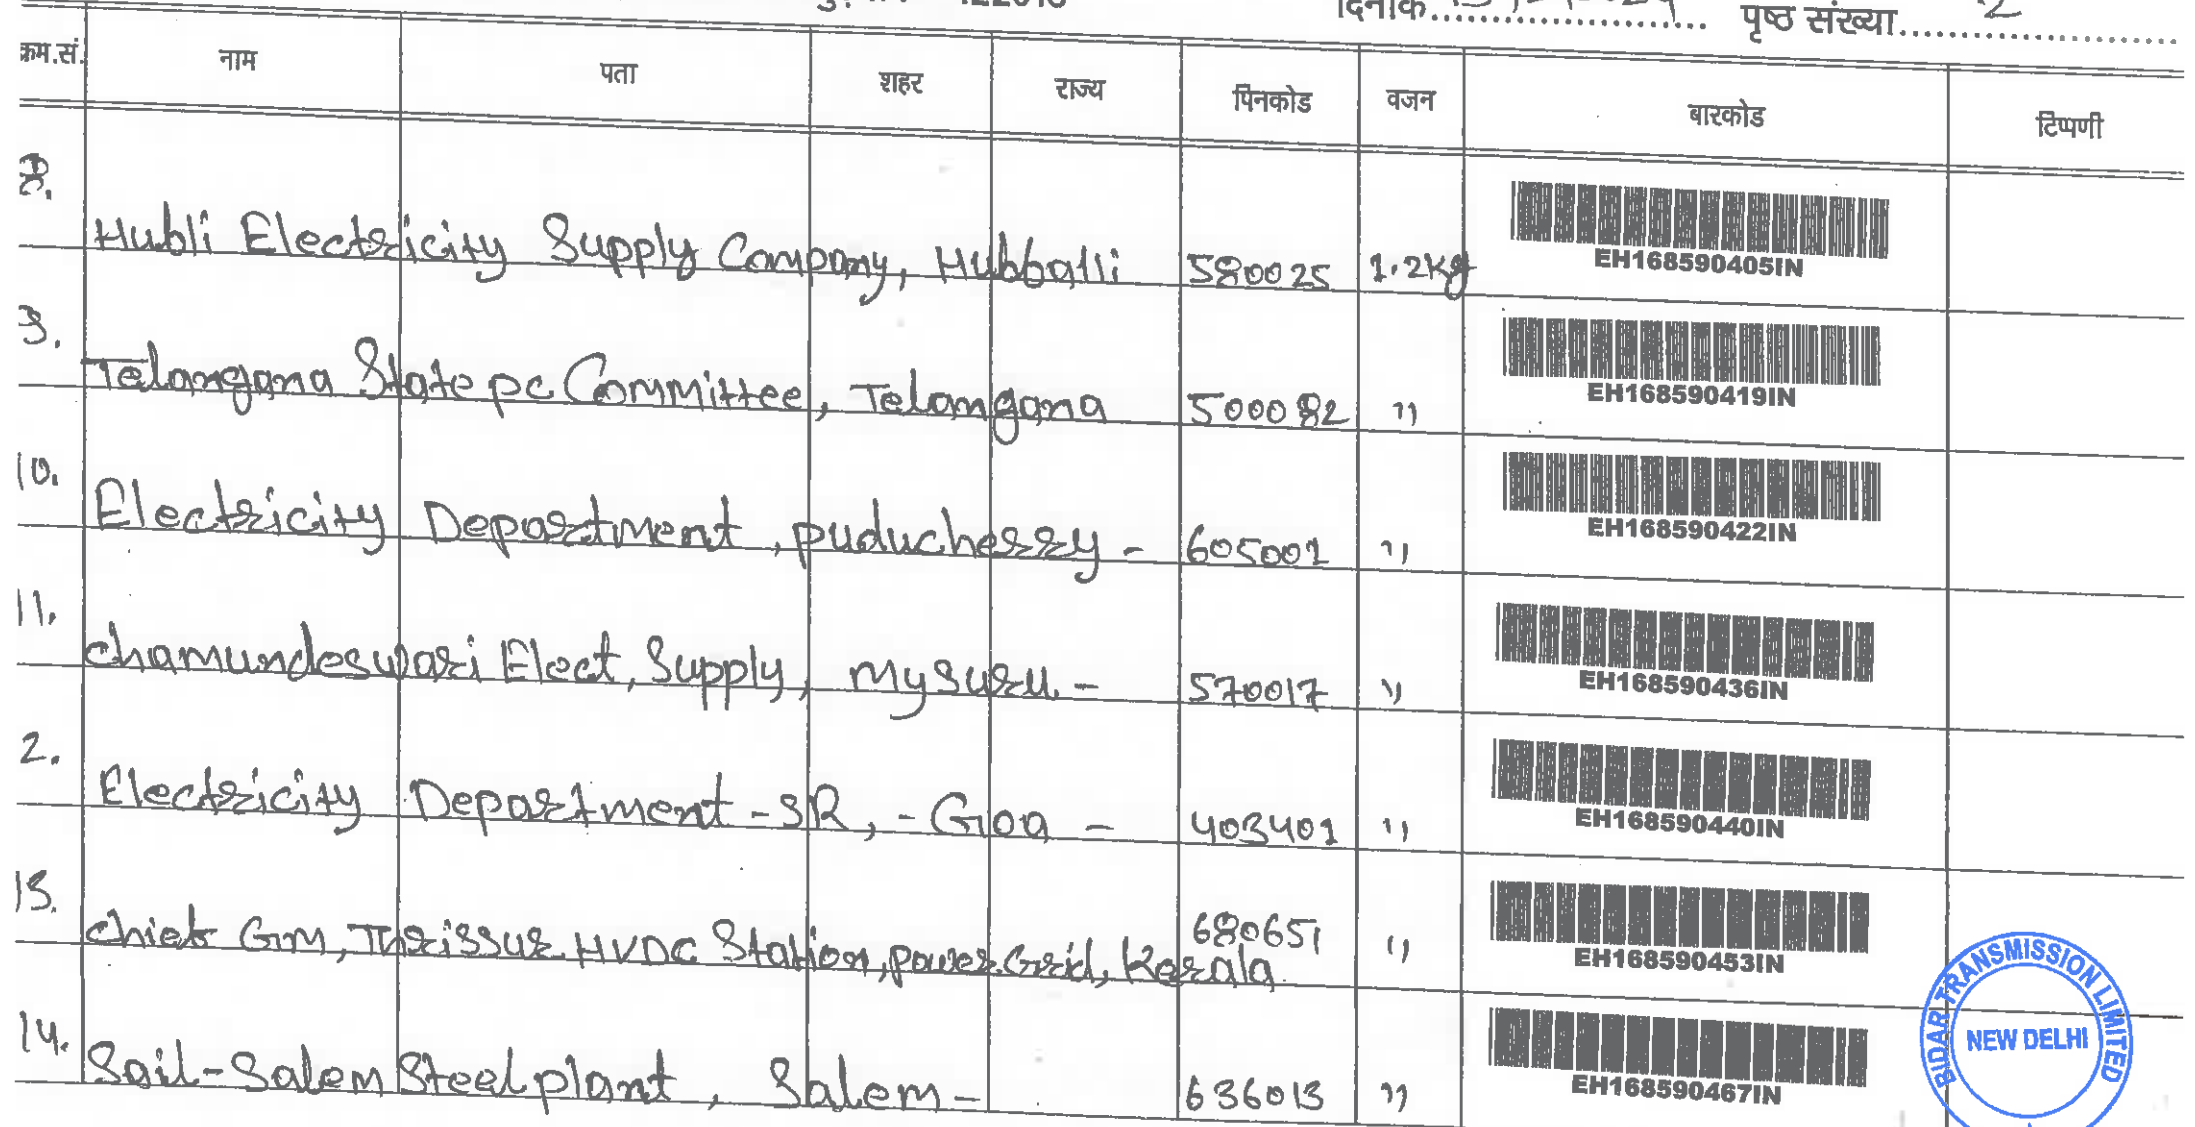 दिनांक
पृष्ठ संख्या 2
क्रम.सं. नाम पता शहर राज्य पिनकोड वजन बारकोड टिप्पणी
8. Hubli Electricity Supply Company, Hubballi 580025 1.2Kg EH168590405IN
9. Telangana State pc Committee, Telangana 500082 " EH168590419IN
10. Electricity Department, puducherry - 605001 " EH168590422IN
11. chamundeswari Elect, Supply, mysuru - 570017 " EH168590436IN
2. Electricity Department - SR, - Goa - 403401 " EH168590440IN
13. chief Gm, Thrissur HVDC Station, power Grid, Kerala 680651 " EH168590453IN
14. Sail - Salem Steel plant, Salem - 636013 " EH168590467IN
BIDAR TRANSMISSION LIMITED
NEW DELHI